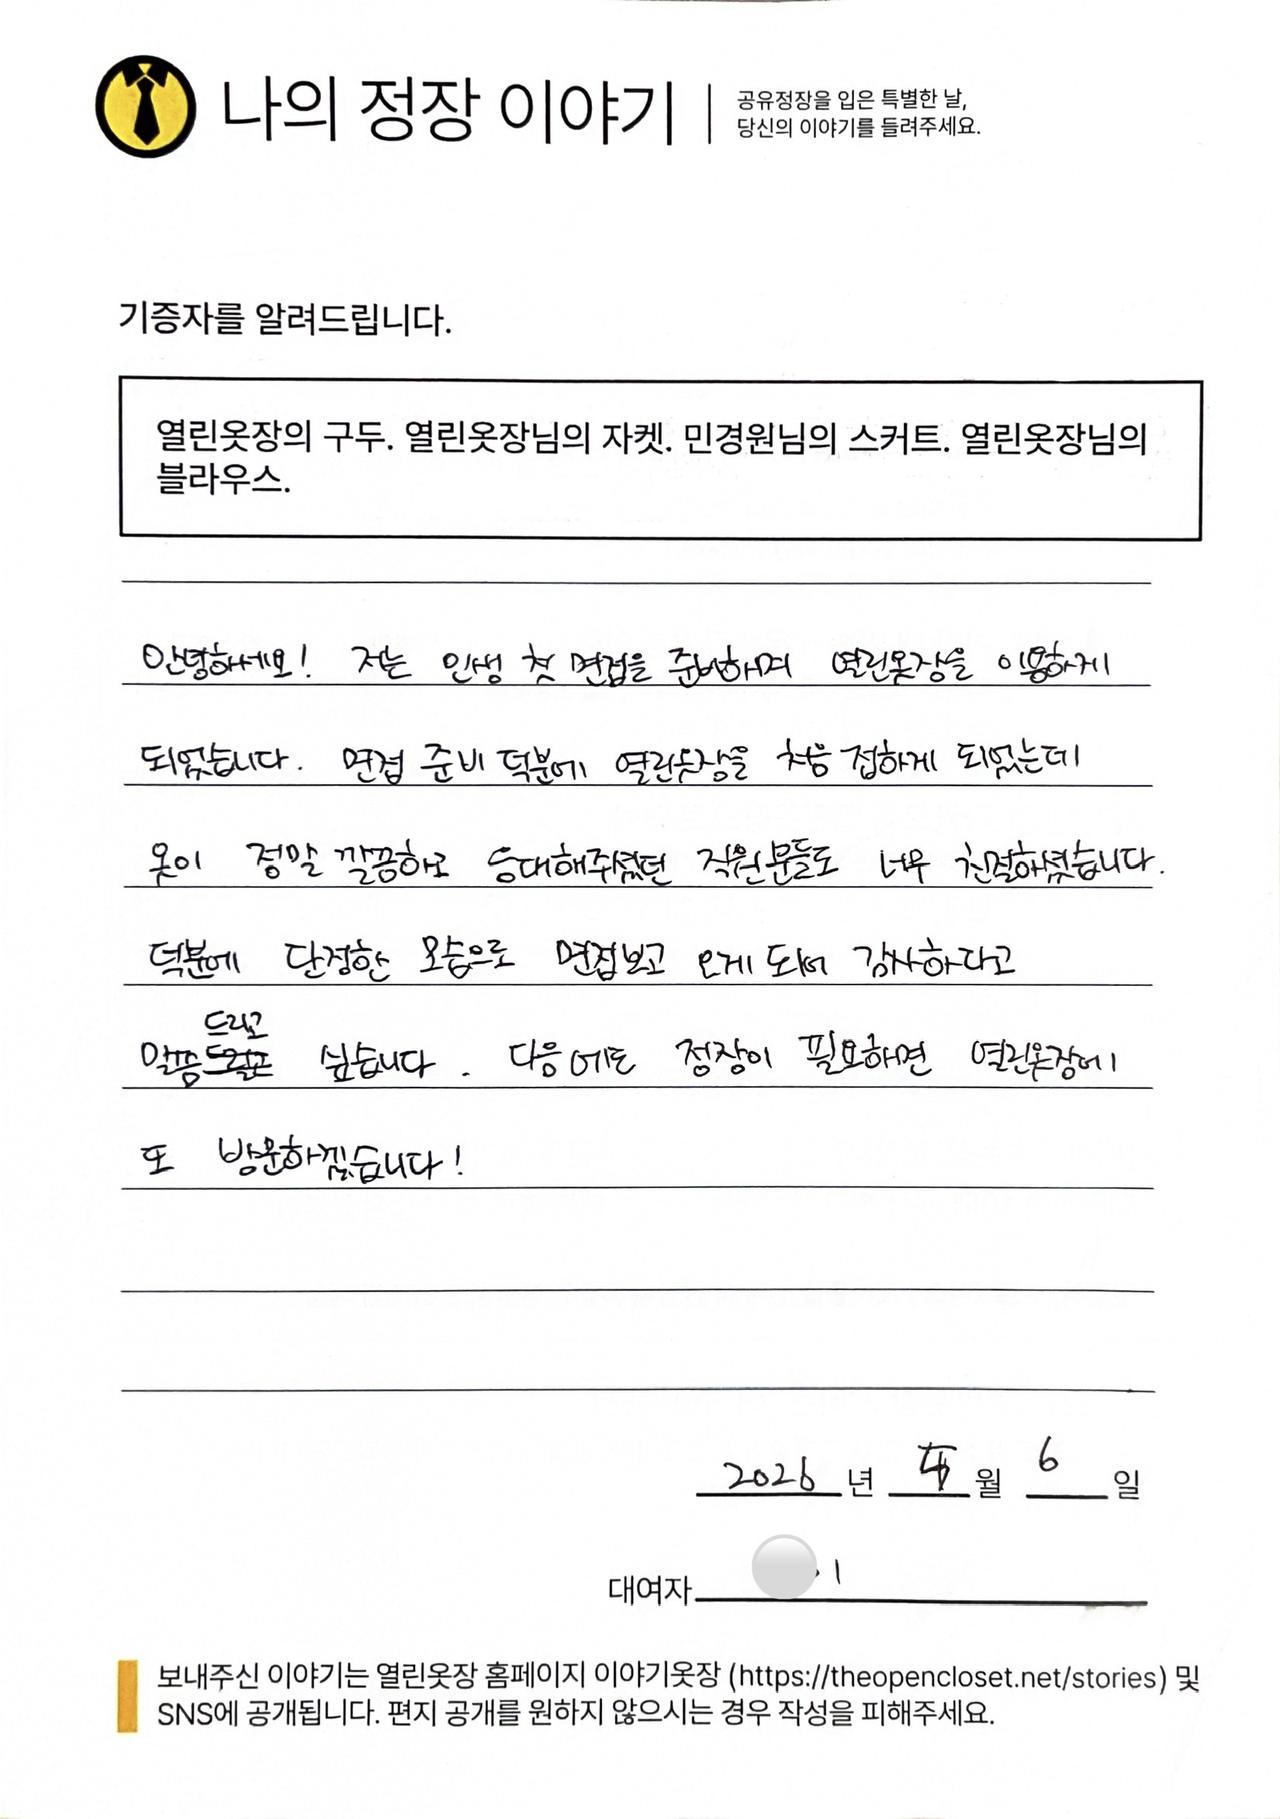 나의 정장 이야기
공유정장을 입은 특별한 날,
당신의 이야기를 들려주세요.
기증자를 알려드립니다.
열린옷장의 구두. 열린옷장님의 자켓. 민경원님의 스커트. 열린옷장님의
블라우스.
안녕하세요! 저는 인생 첫 면접을 준비하며 열린옷장을 이용하게
되었습니다. 면접 준비 덕분에 열린옷장을 처음 접하게 되었는데
옷이 정말 깔끔하고 응대해주셨던 직원분들도 너무 친절하셨습니다.
덕분에 단정한 모습으로 면접보고 오게 되어 감사하다고
드리고
말씀 싶습니다. 다음에도 정장이 필요하면 열린옷장에
또 방문하겠습니다!
2026 년 월 6 일
대여자
보내주신 이야기는 열린옷장 홈페이지 이야기옷장 (https://theopencloset.net/stories) 및
SNS에 공개됩니다. 편지 공개를 원하지 않으시는 경우 작성을 피해주세요.